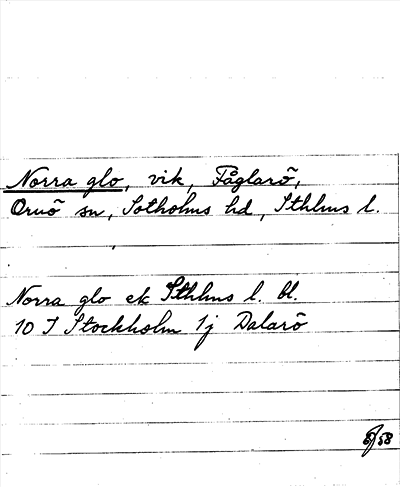 Norra glo, vik, Fåglarö,
Ornö sn, Sotholms hd, Sthlms l.
Norra glo ek Sthlms l. bl.
10 I Stockholm 1j Dalarö
58